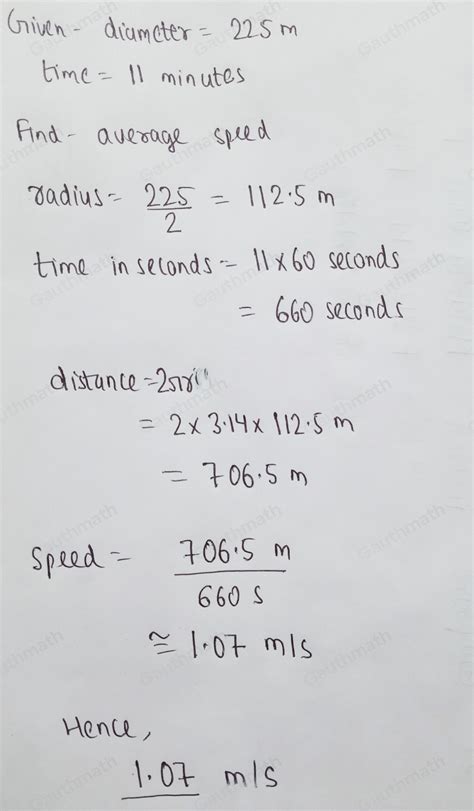 Given - diameter = 225 m
time = 11 minutes
Find - average speed
radius = 225/2 = 112.5 m
time in seconds = 11 × 60 seconds
= 660 seconds
distance = 2πr
= 2 × 3.14 × 112.5 m
= 706.5 m
Speed = 706.5 m / 660 s
≅ 1.07 m/s
Hence,
1.07 m/s